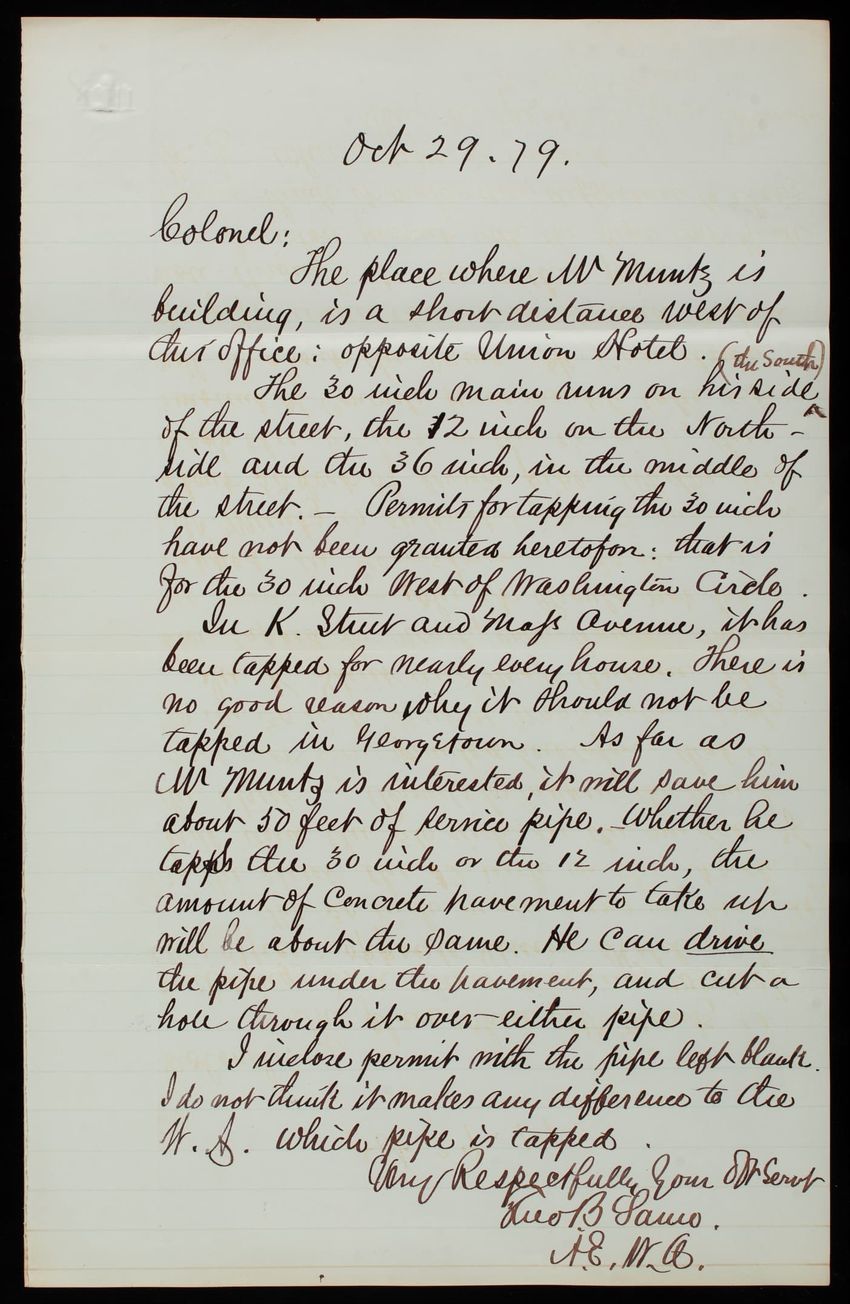 Oct 29. 79.
Colonel:
The place where Mr Muntz is
building, is a short distance west of
this office: opposite Union Hotel.
The 30 inch main runs on his side (the South)
of the street, the 12 inch on the North-
side and the 36 inch, in the middle of
the street. - Permits for tapping the 30 inch
have not been granted heretofore: that is
for the 30 inch West of Washington Circle.
In K. Street and Mass Avenue, it has
been tapped for nearly every house. There is
no good reason why it should not be
tapped in Georgetown. As far as
Mr Muntz is interested, it will save him
about 50 feet of service pipe. - Whether he
tapps the 30 inch or the 12 inch, the
amount of Concrete pavement to take up
will be about the same. He can drive
the pipe under the pavement, and cut a
hole through it over either pipe.
I inclose permit with the pipe left blank.
I do not think it makes any difference to the
W. A. which pipe is tapped.
Very Respectfully Your Obt Servt
Theo B Samo.
A.E. W.A.